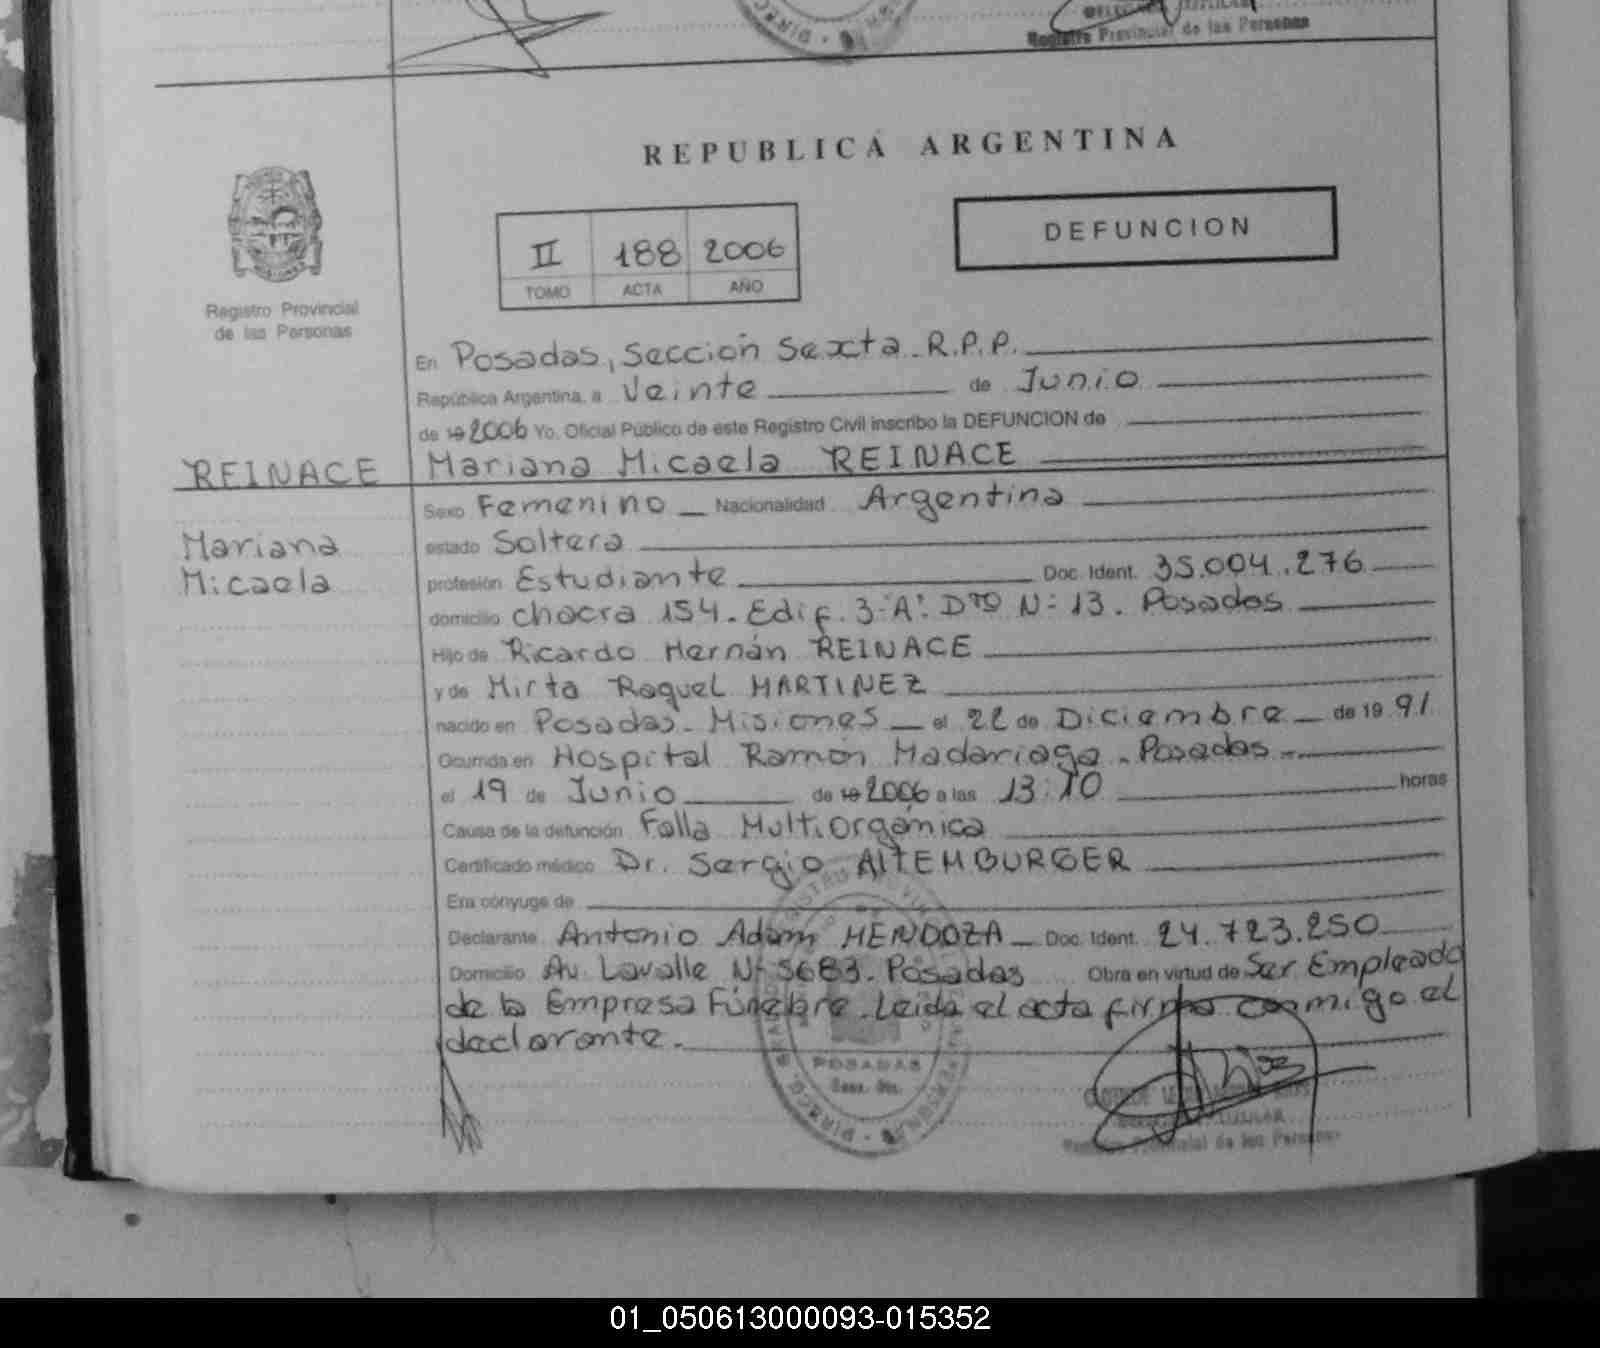 Registro Provincial de las Personas
REPUBLICA ARGENTINA
II 188 2006
TOMO ACTA AÑO
DEFUNCION
Registro Provincial
de las Personas
En Posadas, Sección Sexta. R.P.P.
República Argentina, a Veinte de Junio
de 19 2006 Yo, Oficial Público de este Registro Civil inscribo la DEFUNCION de
REINACE Mariana Micaela REINACE
Sexo Femenino Nacionalidad Argentina
Mariana estado Soltera
Micaela profesión Estudiante Doc. Ident. 35.004.276
domicilio chacra 154. Edif. 3 "A" Dto N: 13. Posadas
Hijo de Ricardo Hernán REINACE
y de Mirta Raquel MARTINEZ
nacido en Posadas. Misiones el 22 de Diciembre de 19 91
Ocurrida en Hospital Ramón Madariaga. Posadas
el 19 de Junio de 19 2006 a las 13:10 horas
Causa de la defunción Falla Multiorgánica
Certificado médico Dr. Sergio ALTEMBURGER
Era cónyuge de
Declarante Antonio Adam MENDOZA Doc. Ident. 24.723.250
Domicilio Av. Lavalle N: 5683. Posadas Obra en virtud de Ser Empleado
de la Empresa Fúnebre. Leida el acta firma conmigo el
declarante.
POSADAS
Registro Provincial de las Personas
01_050613000093-015352